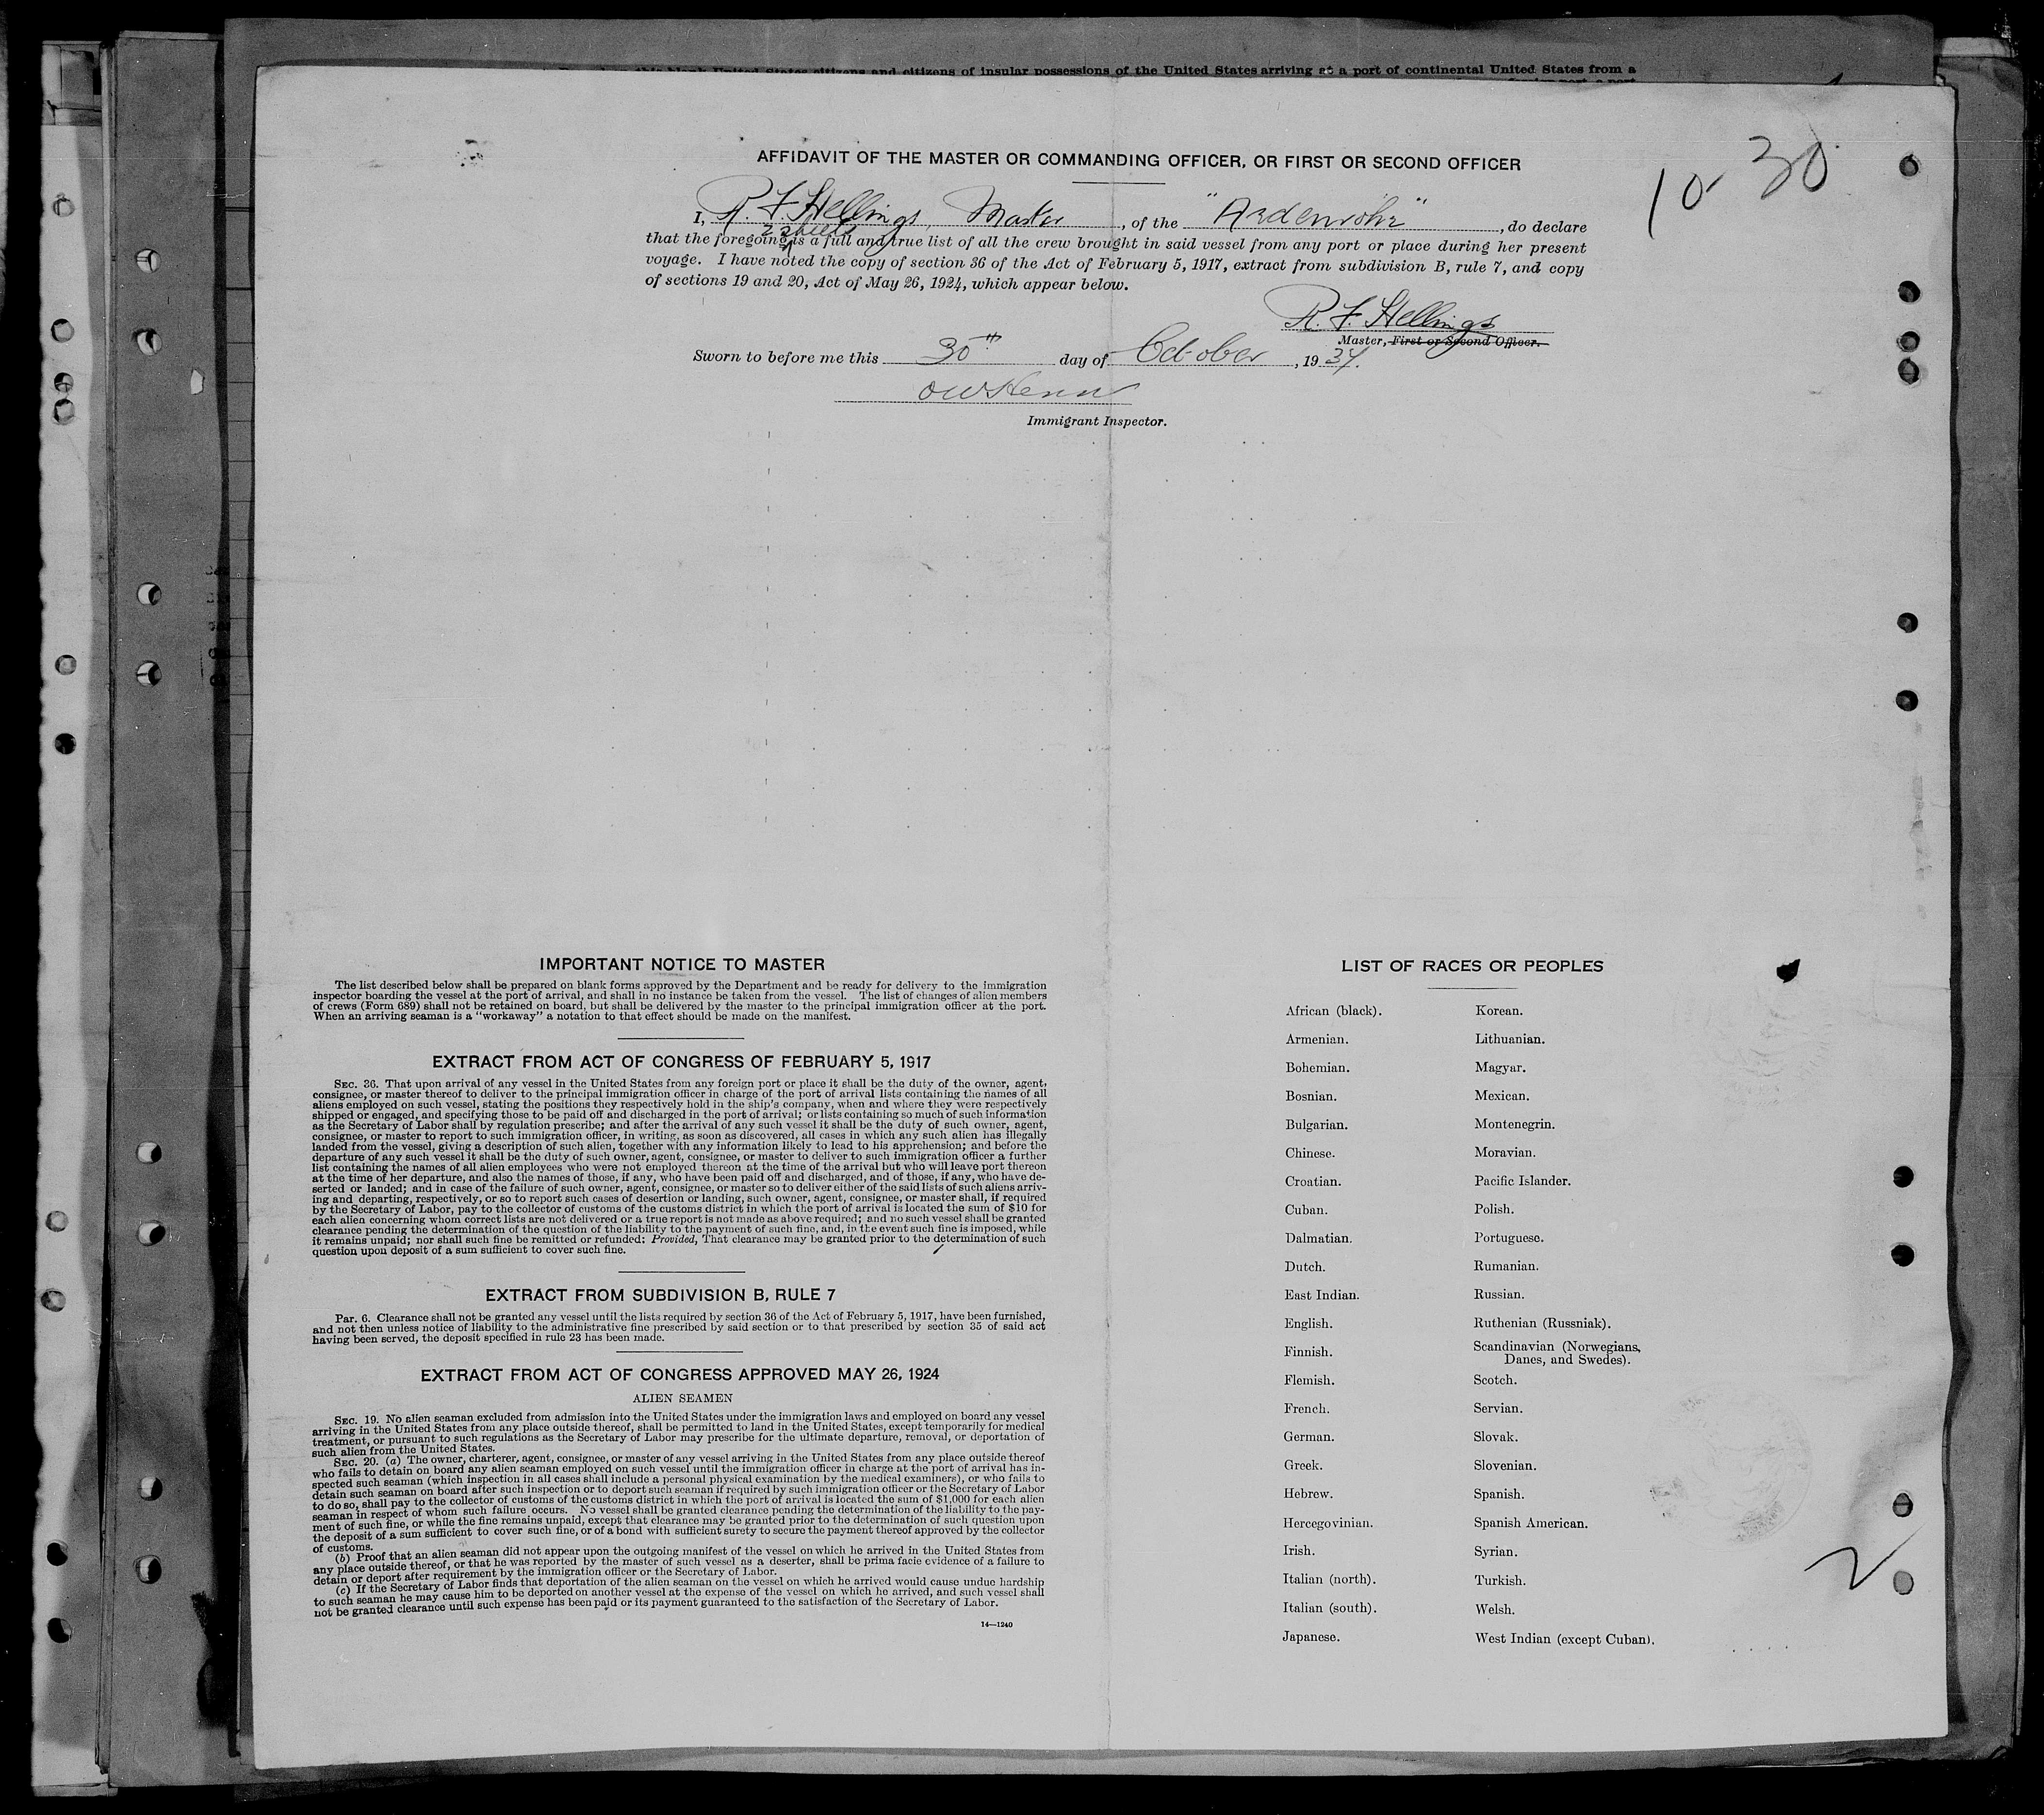 citizens and citizens of insular possessions of the United States arriving at a port of continental United States from a
10-30
AFFIDAVIT OF THE MASTER OR COMMANDING OFFICER, OR FIRST OR SECOND OFFICER
I, R. F. Hellings, Master, of the "Ardenvohr", do declare
2 sheets
that the foregoing is a full and true list of all the crew brought in said vessel from any port or place during her present
voyage. I have noted the copy of section 36 of the Act of February 5, 1917, extract from subdivision B, rule 7, and copy
of sections 19 and 20, Act of May 26, 1924, which appear below.
R. F. Hellings
Master, First or Second Officer.
Sworn to before me this 30th day of October, 1934.
Immigrant Inspector.
IMPORTANT NOTICE TO MASTER
The list described below shall be prepared on blank forms approved by the Department and be ready for delivery to the immigration
inspector boarding the vessel at the port of arrival, and shall in no instance be taken from the vessel. The list of changes of alien members
of crews (Form 689) shall not be retained on board, but shall be delivered by the master to the principal immigration officer at the port.
When an arriving seaman is a "workaway" a notation to that effect should be made on the manifest.
EXTRACT FROM ACT OF CONGRESS OF FEBRUARY 5, 1917
SEC. 36. That upon arrival of any vessel in the United States from any foreign port or place it shall be the duty of the owner, agent,
consignee, or master thereof to deliver to the principal immigration officer in charge of the port of arrival lists containing the names of all
aliens employed on such vessel, stating the positions they respectively hold in the ship's company, when and where they were respectively
shipped or engaged, and specifying those to be paid off and discharged in the port of arrival; or lists containing so much of such information
as the Secretary of Labor shall by regulation prescribe; and after the arrival of any such vessel it shall be the duty of such owner, agent,
consignee, or master to report to such immigration officer, in writing, as soon as discovered, all cases in which any such alien has illegally
landed from the vessel, giving a description of such alien, together with any information likely to lead to his apprehension; and before the
departure of any such vessel it shall be the duty of such owner, agent, consignee, or master to deliver to such immigration officer a further
list containing the names of all alien employees who were not employed thereon at the time of the arrival but who will leave port thereon
at the time of her departure, and also the names of those, if any, who have been paid off and discharged, and of those, if any, who have de-
serted or landed; and in case of the failure of such owner, agent, consignee, or master so to deliver either of the said lists of such aliens arriv-
ing and departing, respectively, or so to report such cases of desertion or landing, such owner, agent, consignee, or master shall, if required
by the Secretary of Labor, pay to the collector of customs of the customs district in which the port of arrival is located the sum of $10 for
each alien concerning whom correct lists are not delivered or a true report is not made as above required; and no such vessel shall be granted
clearance pending the determination of the question of the liability to the payment of such fine, and, in the event such fine is imposed, while
it remains unpaid; nor shall such fine be remitted or refunded: Provided, That clearance may be granted prior to the determination of such
question upon deposit of a sum sufficient to cover such fine.
EXTRACT FROM SUBDIVISION B, RULE 7
PAR. 6. Clearance shall not be granted any vessel until the lists required by section 36 of the Act of February 5, 1917, have been furnished,
and not then unless notice of liability to the administrative fine prescribed by said section or to that prescribed by section 35 of said act
having been served, the deposit specified in rule 23 has been made.
EXTRACT FROM ACT OF CONGRESS APPROVED MAY 26, 1924
ALIEN SEAMEN
SEC. 19. No alien seaman excluded from admission into the United States under the immigration laws and employed on board any vessel
arriving in the United States from any place outside thereof, shall be permitted to land in the United States, except temporarily for medical
treatment, or pursuant to such regulations as the Secretary of Labor may prescribe for the ultimate departure, removal, or deportation of
such alien from the United States.
SEC. 20. (a) The owner, charterer, agent, consignee, or master of any vessel arriving in the United States from any place outside thereof
who fails to detain on board any alien seaman employed on such vessel until the immigration officer in charge at the port of arrival has in-
spected such seaman (which inspection in all cases shall include a personal physical examination by the medical examiners), or who fails to
detain such seaman on board after such inspection or to deport such seaman if required by such immigration officer or the Secretary of Labor
to do so, shall pay to the collector of customs of the customs district in which the port of arrival is located the sum of $1,000 for each alien
seaman in respect of whom such failure occurs. No vessel shall be granted clearance pending the determination of the liability to the pay-
ment of such fine, or while the fine remains unpaid, except that clearance may be granted prior to the determination of such question upon
the deposit of a sum sufficient to cover such fine, or of a bond with sufficient surety to secure the payment thereof approved by the collector
of customs.
(b) Proof that an alien seaman did not appear upon the outgoing manifest of the vessel on which he arrived in the United States from
any place outside thereof, or that he was reported by the master of such vessel as a deserter, shall be prima facie evidence of a failure to
detain or deport after requirement by the immigration officer or the Secretary of Labor.
(c) If the Secretary of Labor finds that deportation of the alien seaman on the vessel on which he arrived would cause undue hardship
to such seaman he may cause him to be deported on another vessel at the expense of the vessel on which he arrived, and such vessel shall
not be granted clearance until such expense has been paid or its payment guaranteed to the satisfaction of the Secretary of Labor.
14—1240
LIST OF RACES OR PEOPLES
African (black).
Armenian.
Bohemian.
Bosnian.
Bulgarian.
Chinese.
Croatian.
Cuban.
Dalmatian.
Dutch.
East Indian.
English.
Finnish.
Flemish.
French.
German.
Greek.
Hebrew.
Hercegovinian.
Irish.
Italian (north).
Italian (south).
Japanese.
Korean.
Lithuanian.
Magyar.
Mexican.
Montenegrin.
Moravian.
Pacific Islander.
Polish.
Portuguese.
Rumanian.
Russian.
Ruthenian (Russniak).
Scandinavian (Norwegians,
Danes, and Swedes).
Scotch.
Servian.
Slovak.
Slovenian.
Spanish.
Spanish American.
Syrian.
Turkish.
Welsh.
West Indian (except Cuban).
2